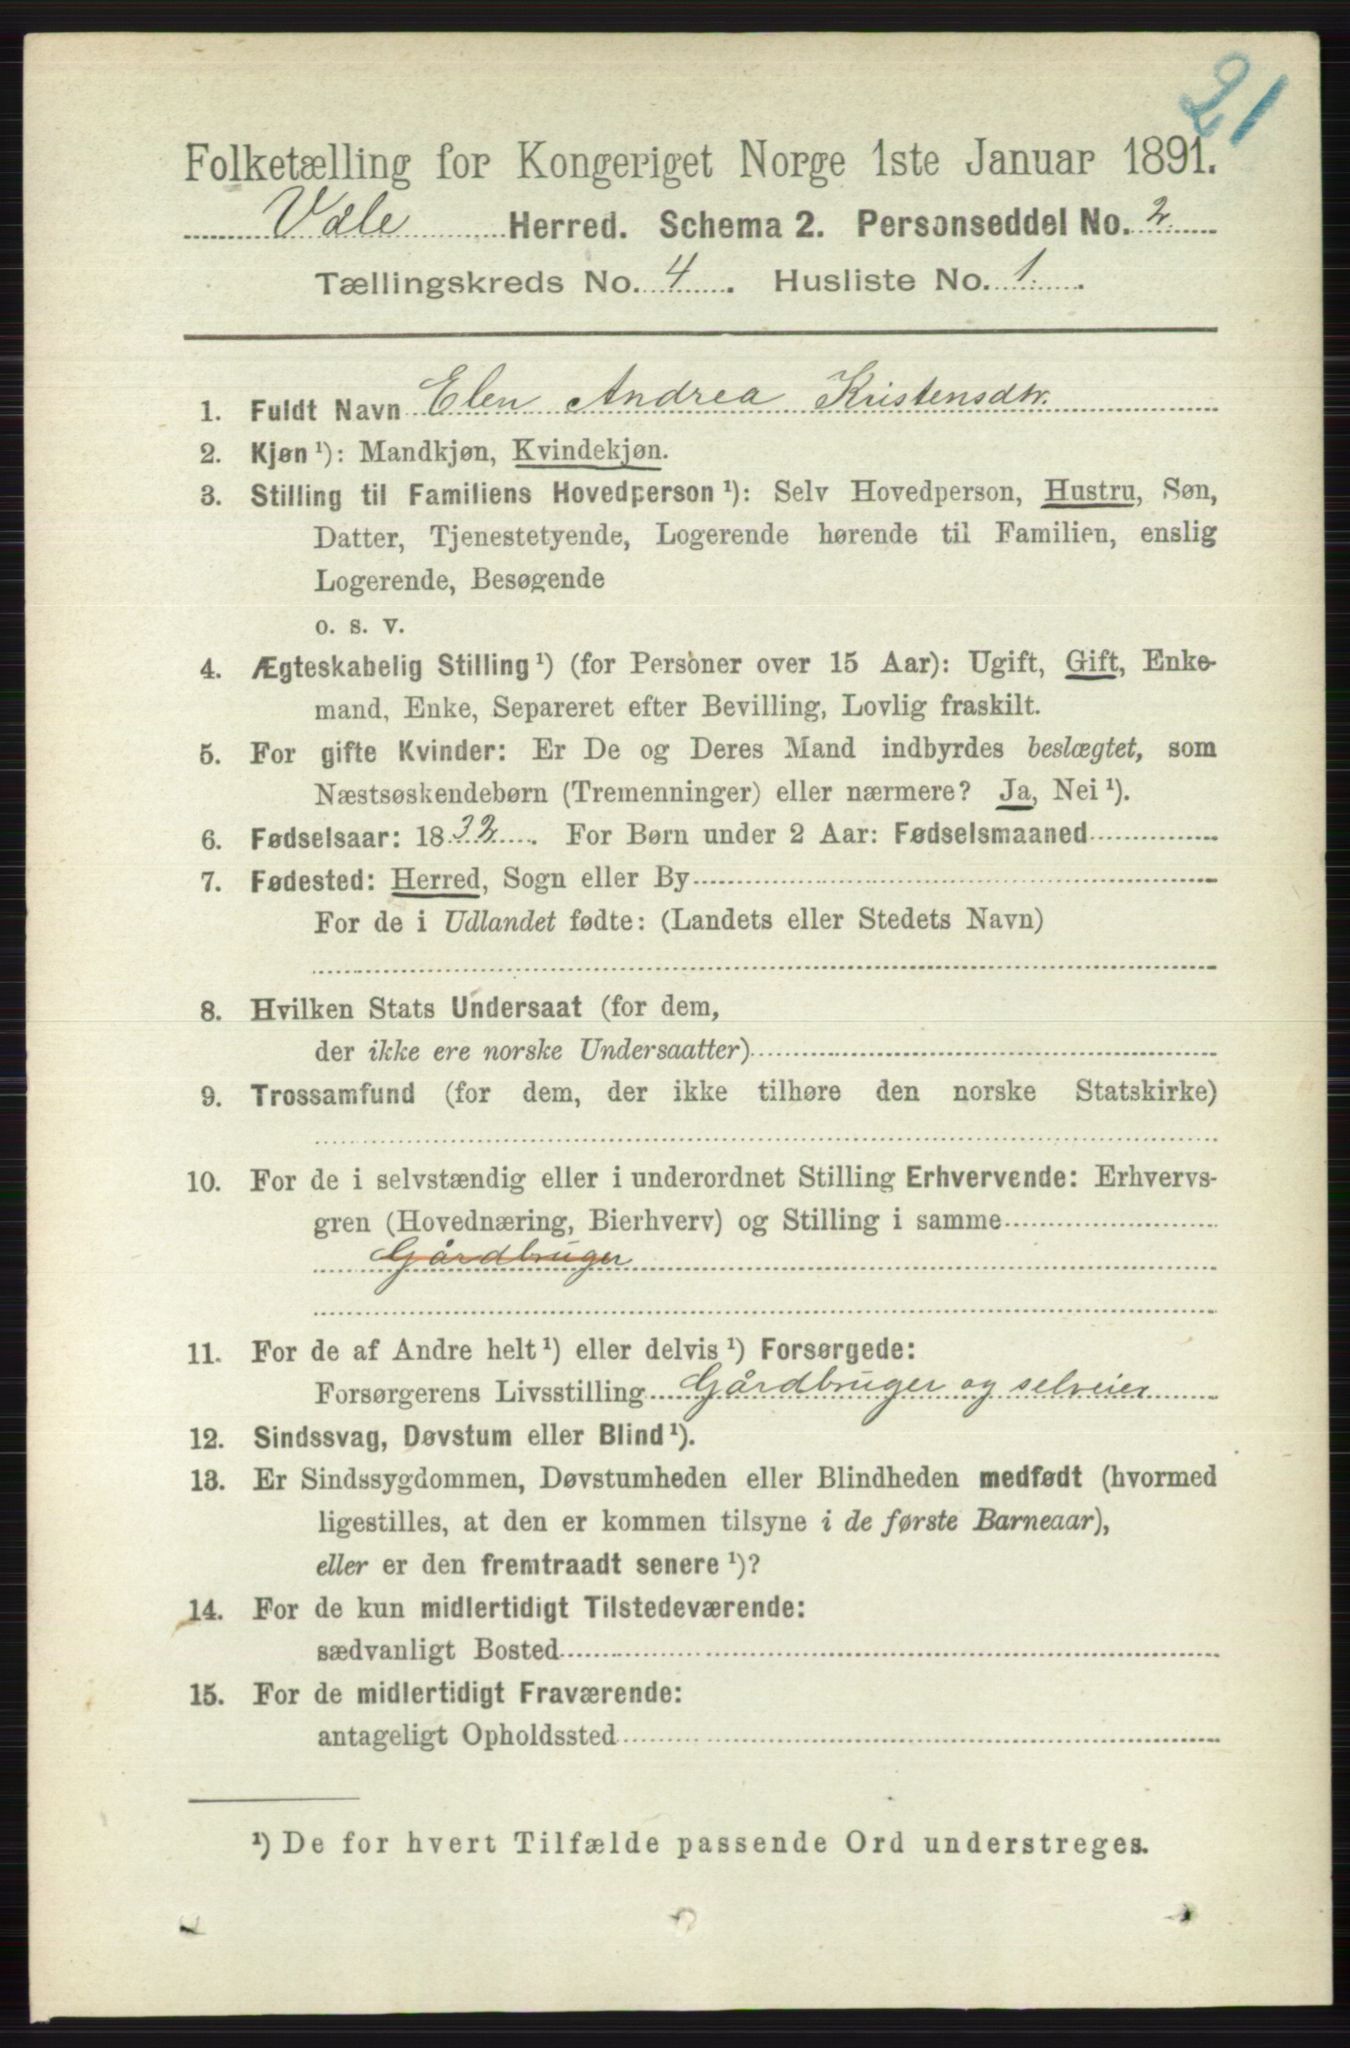 21
Folketælling for Kongeriget Norge 1ste Januar 1891.
Våle Herred. Schema 2. Personseddel No. 2
Tællingskreds No. 4. Husliste No. 1.
1. Fuldt Navn Elen Andrea Kristensdtr.
2. Kjøn ¹): Mandkjøn, Kvindekjøn.
3. Stilling til Familiens Hovedperson ¹): Selv Hovedperson, Hustru, Søn,
Datter, Tjenestetyende, Logerende hørende til Familien, enslig
Logerende, Besøgende
o. s. v.
4. Ægteskabelig Stilling ¹) (for Personer over 15 Aar): Ugift, Gift, Enke-
mand, Enke, Separeret efter Bevilling, Lovlig fraskilt.
5. For gifte Kvinder: Er De og Deres Mand indbyrdes beslægtet, som
Næstsøskendebørn (Tremenninger) eller nærmere? Ja, Nei ¹).
6. Fødselsaar: 1832. For Børn under 2 Aar: Fødselsmaaned
7. Fødested: Herred, Sogn eller By
For de i Udlandet fødte: (Landets eller Stedets Navn)
8. Hvilken Stats Undersaat (for dem,
der ikke ere norske Undersaatter)
9. Trossamfund (for dem, der ikke tilhøre den norske Statskirke)
10. For de i selvstændig eller i underordnet Stilling Erhvervende: Erhvervs-
gren (Hovednæring, Bierhverv) og Stilling i samme
Gårdbruger
11. For de af Andre helt ¹) eller delvis ¹) Forsørgede:
Forsørgerens Livsstilling Gårdbruger og selveier
12. Sindssvag, Døvstum eller Blind ¹).
13. Er Sindssygdommen, Døvstumheden eller Blindheden medfødt (hvormed
ligestilles, at den er kommen tilsyne i de første Barneaar),
eller er den fremtraadt senere ¹)?
14. For de kun midlertidigt Tilstedeværende:
sædvanligt Bosted
15. For de midlertidigt Fraværende:
antageligt Opholdssted
¹) De for hvert Tilfælde passende Ord understreges.